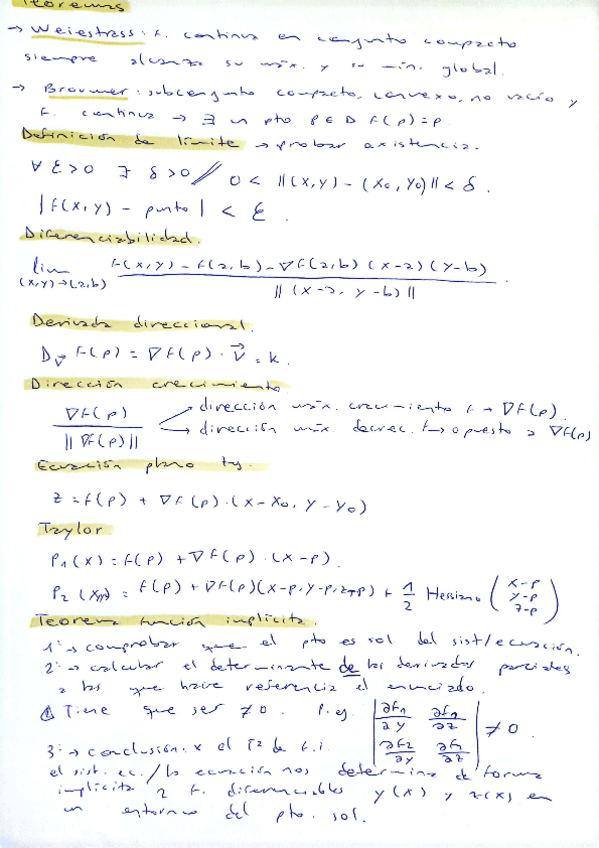 Teoremas
→ Weiestrass: f. continua en conjunto compacto
siempre alcanza su máx. y su mín. global.
→ Brouwer: subconjunto compacto, convexo, no vacío y
f. continua → ∃ un pto P ∈ D f(p)=p.
Definición de límite → probar existencia.
∀ ε>0 ∃ δ>0 // 0 < ||(x,y) - (x0, y0)|| < δ.
|f(x,y) - punto| < ε.
Diferenciabilidad.
lim (x,y)→(a,b) f(x,y) - f(a,b) - ∇f(a,b) (x-a)(y-b) / ||(x-a, y-b)||
Derivada direccional.
D_v f(p) = ∇f(p) · v⃗ = k.
Dirección crecimiento
∇f(p) / ||∇f(p)|| → dirección máx. crecimiento f → ∇f(p).
→ dirección máx. decrec. f → opuesto a ∇f(p)
Ecuación plano tg.
z = f(p) + ∇f(p) · (x-x0, y-y0)
Taylor
P1(x) = f(p) + ∇f(p) · (x-p).
P2(x) = f(p) + ∇f(p)(x-p, y-p, z-p) + 1/2 Hessiano (x-p y-p z-p)
Teorema función implícita.
1º → comprobar que el pto es sol del sist/ecuación.
2º → calcular el determinante de las derivadas parciales
a las que hace referencia el enunciado.
⚠ Tiene que ser ≠ 0. P. ej. |∂f1/∂y ∂f1/∂z ∂f2/∂y ∂f1/∂z| ≠ 0.
3º → conclusión: x el T2 de f.i.
el sist. ec./la ecuación nos determina de forma
implícita 2 f. diferenciables y(x) y z(x) en
un entorno del pto. sol.